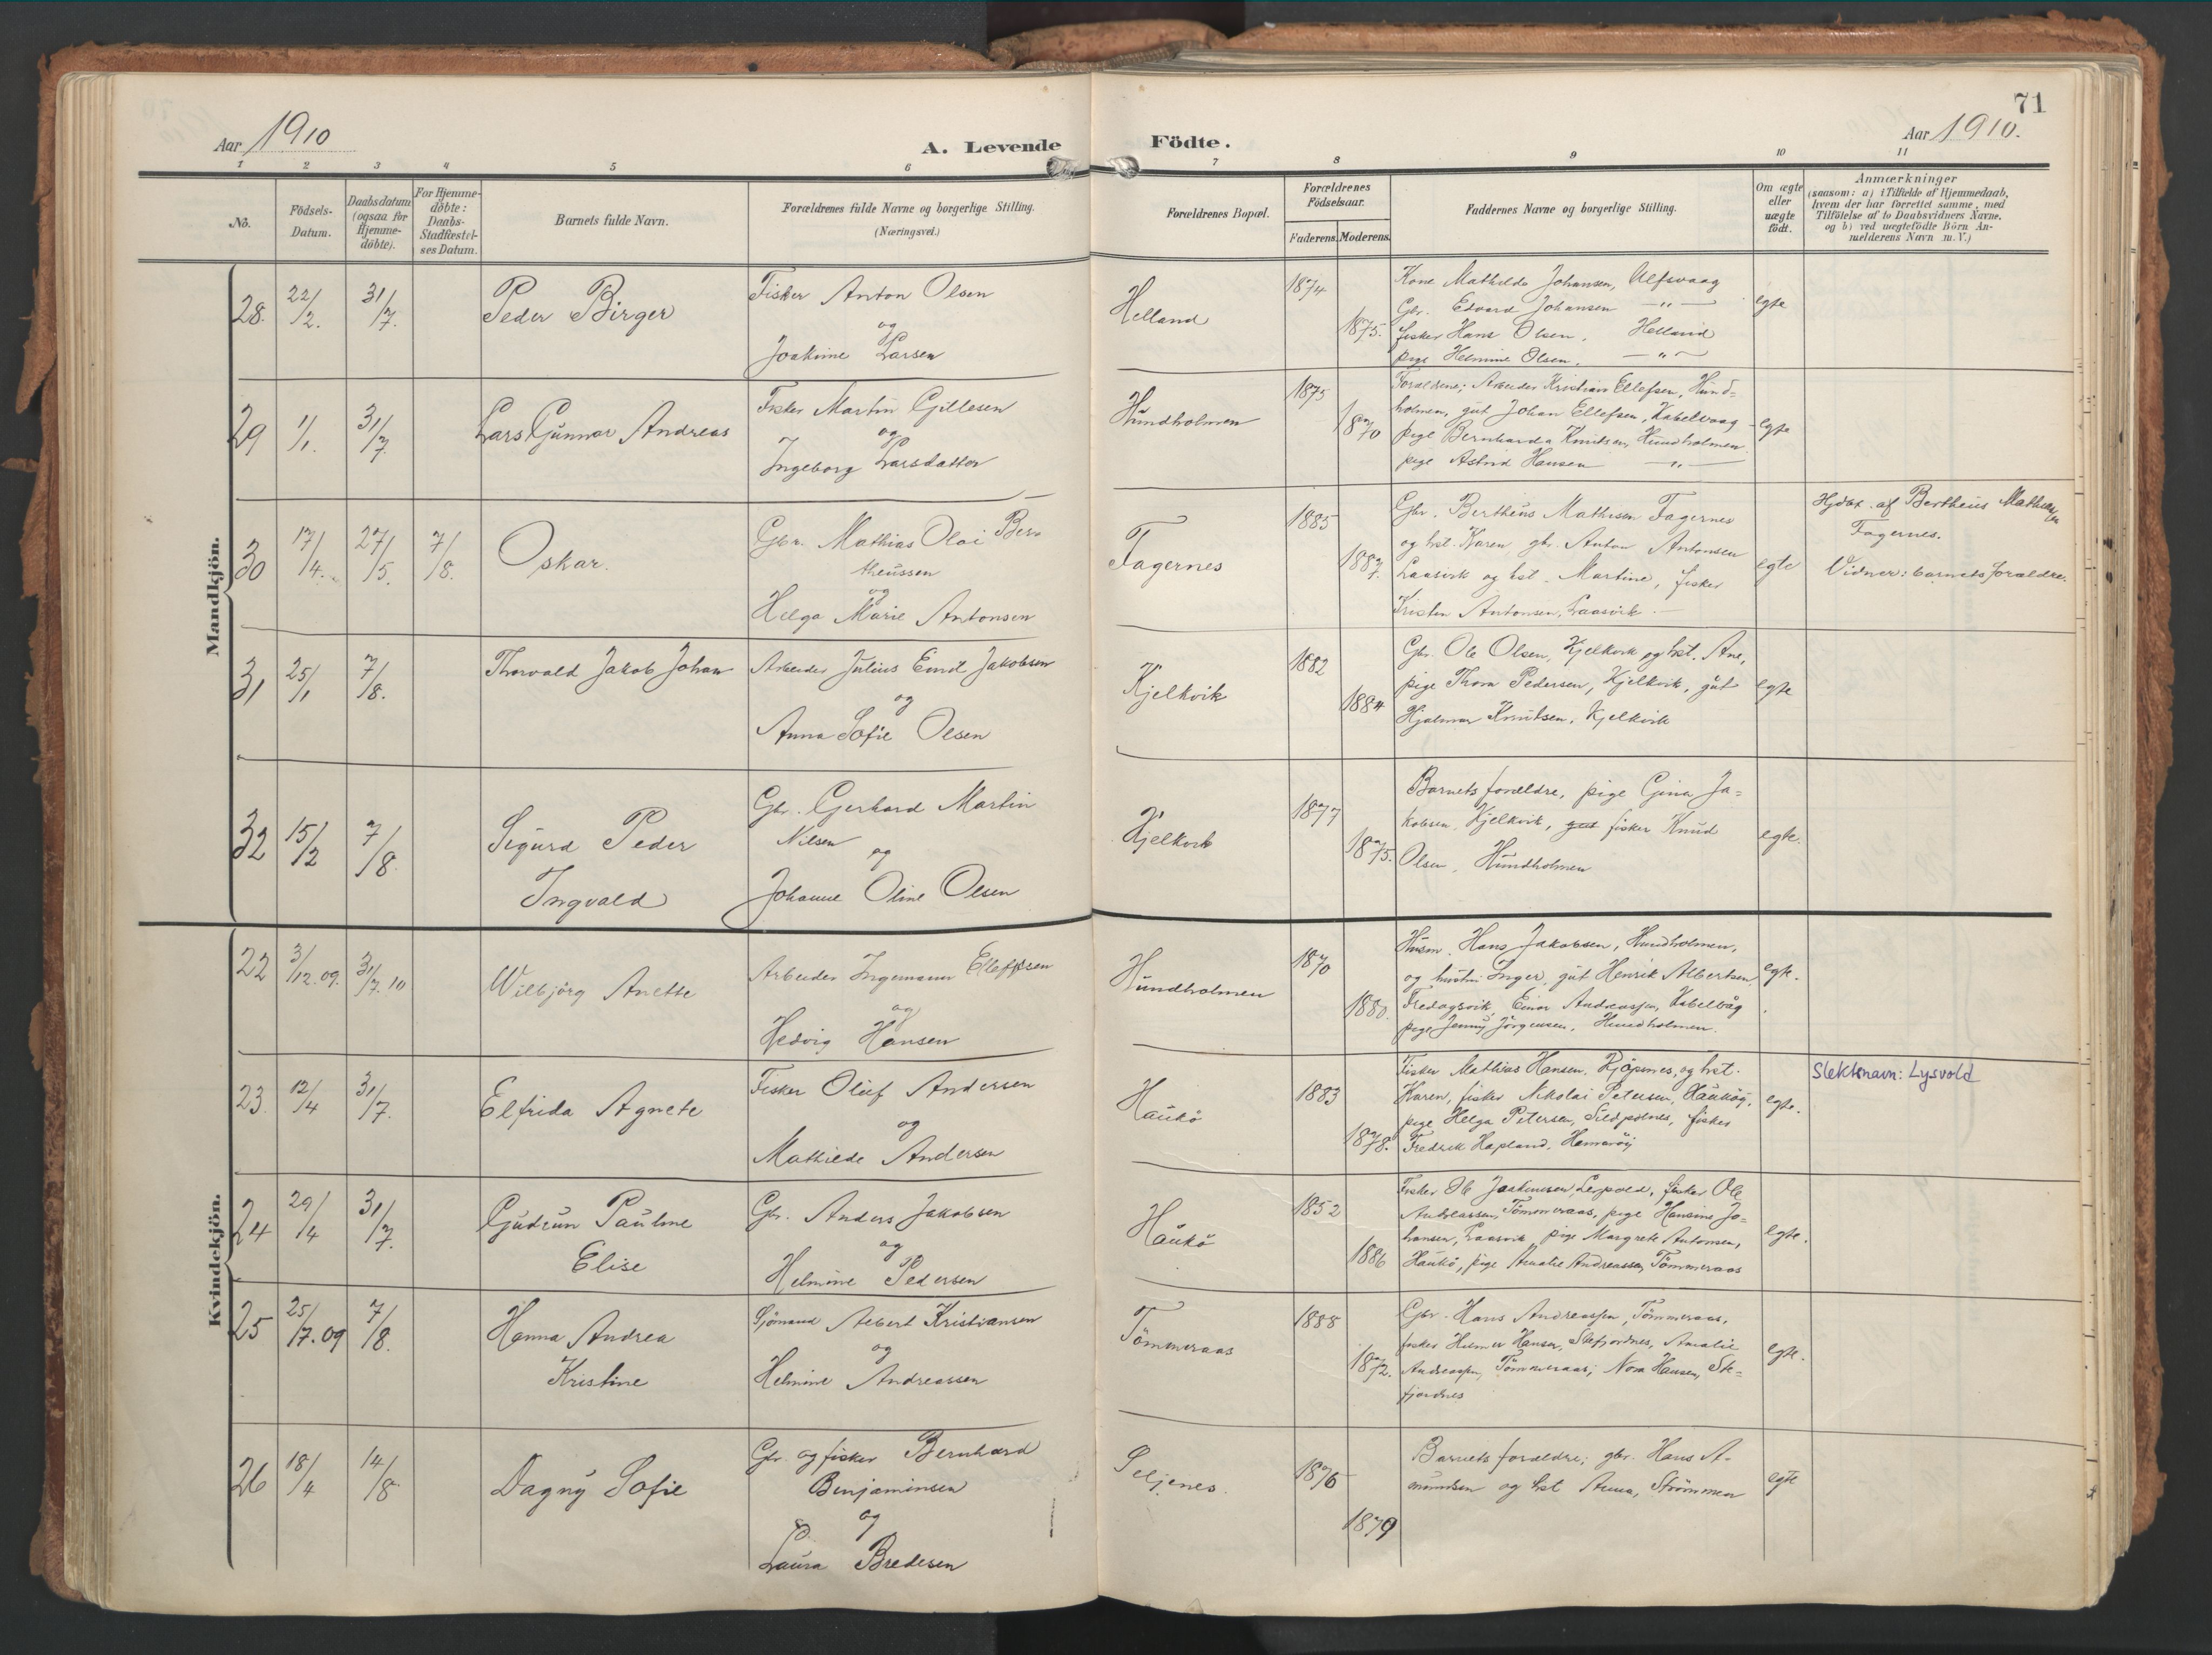 71
Aar 1910
A. Levende Födte.
Aar 1910.
1 2 3 4 5 6 7 8 9 10 11
No.
Födsels-
Datum.
Daabsdatum
(ogsaa for
Hjemme-
döbte).
For Hjemme-
döbte:
Daabs-
Stadfæstel-
ses Datum.
Barnets fulde Navn.
Forældrenes fulde Navne og borgerlige Stilling.
(Næringsvei.)
Forældrenes Bopæl.
Forældrenes
Födselsaar.
Faderens. Moderens.
Faddernes Navne og borgerlige Stilling.
Om ægte
eller
uægte
födt.
Anmærkninger
(saasom: a) i Tilfælde af Hjemmedaab,
hvem der har forrettet samme, med
Tilföielse af to Daabsvidners Navne,
og b) ved uægtefödte Börn An-
melderens Navn m. V.)
Mandkjön.
28. 22/2. 31/7. Peder Birger
Fisker Anton Olsen
og
Joakime Larsen
Helland 1874 1875.
Kone Mathilde Johansen, Ulfsvaag
Gbr. Edvard Johansen — " —
fisker Hans Olsen, Helland
pige Helmine Olsen, — " —
egte
29 1/1. 31/7. Lars Gunnar Andreas
Fisker Martin Gillesen
og
Ingeborg Larsdatter
Hundholmen 1875 1870
Forældrene; Arbeider Kristian Ellefsen, Hund-
holmen, gut Johan Ellefsen, Kabelvaag
pige Bernharda Knutsen, Hundholmen.
pige Astrid Hansen — " —
egte
30 17/4. 27/5. 7/8. Oskar.
Gbr. Mathias Olai Ber-
theussen
og
Helga Marie Antonsen
Fagernes 1885 1887.
Gbr. Bertheus Mathisen Fagernes
og hst. Karen gbr. Anton Antonsen
Laasvik og hst. Martine, fisker
Kristen Antonsen, Laasvik. —
egte
Hjdøt. af Bertheus Mathisen
Fagernes.
Vidner: barnets forældre.
31 25/1 7/8. Thorvald Jakob Johan
Arbeider Julius Emil Jakobsen
og
Anna Sofie Olsen
Kjelkvik 1882 1884
Gbr. Ole Olsen, Kjelkvik og hst. Ane,
pige Thora Pedersen, Kjelkvik, gut
Hjalmar Knutsen, Kjelkvik
egte
32 15/2 7/8. Sigurd Peder
Ingvald
Gbr. Gerhard Martin
Nilsen
og
Johanne Oline Olsen
Kjelkvik 1877 1875.
Barnets forældre, pige Gina Ja=
kobsen, Kjelkvik, gut fisker Knud
Olsen, Hundholmen
egte.
Kvindekjön.
22 3/12.09. 31/7.10 Wilbjörg Anette
Arbeider Ingemann Elleffsen
og
Hedvig Hansen
Hundholmen 1870 1880.
Husm. Hans Jakobsen, Hundholmen,
og hustru Inger, gut Henrik Albertsen
Fredagsvik, Einar Andreassen, Kabelvåg
pige Jenny Jörgensen, Hundholmen.
egte.
23. 12/4 31/7. Elfrida Agnete
Fisker Oluf Andersen
og
Mathilde Andersen
Haukö 1883 1878.
Fisker Mathias Hansen, Kjöpnes, og hst.
Karen, fisker Nikolai Petersen, Haukøy,
pige Helga Petersen, Sildpolnes, fisker
Fredrik Hapland, Hamarøy
egte.
Slektsnavn: Lysvold
24 29/4 31/7. Gudrun Pauline
Elise
Gbr. Anders Jakobsen
og
Helmine Pedersen
Haukö 1852 1886
Fisker Ole Joakimsen, Leopold, fisker Ole
Andreassen, Tömmeraas, pige Hansine Jo=
hansen, Laasvik pige Margrete Antonsen,
Haukö, pige Amalie Andreassen, Tömmeraas
egte.
25 25/7.09 7/8. Hanna Andrea
Kristine
Sjömand Albert Kristiansen
og
Helmine Andreassen
Tömmeraas 1888 1872.
Gbr. Hans Andreassen, Tömmeraas,
fisker Hilmer Hansen, Stefjordnes, Amalie
Andreassen, Tömmeraas, Nora Hansen, Ste=
fjordnes
egte.
26 18/4 14/8 Dagny Sofie
Gbr. og fisker Bernhard
Benjaminsen
og
Laura Bredesen
Seljenes. 1876 1879
Barnets forældre; gbr. Hans A-
mundsen og hst Anna, Strömmen
egte